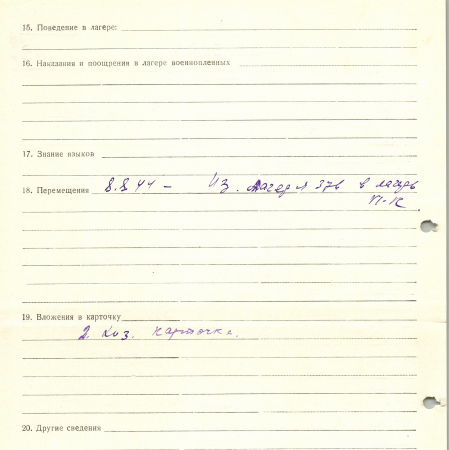 15. Поведение в лагере:
16. Наказания и поощрения в лагере военнопленных
17. Знание языков
18. Перемещения 8.8 44 – Из. лагеря 376 в лагерь
П-К
19. Вложения в карточку
2 карточки.
20. Другие сведения